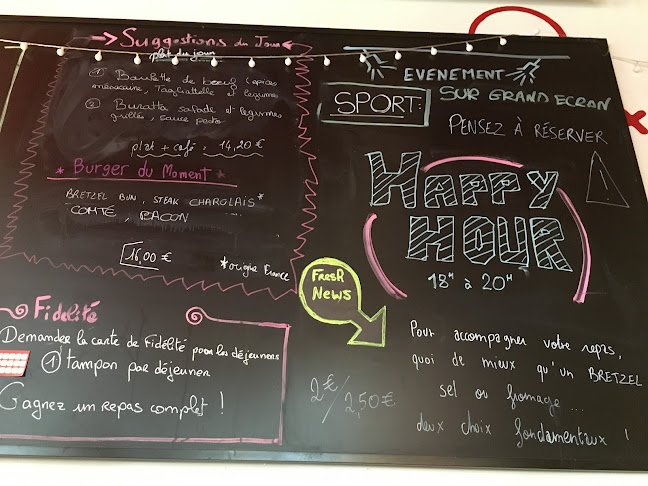 Suggestions du Jour
plat du jour
① Boulette de boeuf (épices
marocaine, Tagliattelle et legumes
② Buratta salade et legumes
grillés, sauce pesto
plat + café = 14,20 €
* Burger du Moment *
BRETZEL BUN, STEAK CHAROLAIS*
COMTÉ, BACON ....
16,00 €
*origine France
Fidelité
Demandez la carte de Fidélité pour les déjeuners
① tampon par déjeuner
Gagnez un repas complet !
EVENEMENT
SPORT:
SUR GRAND ECRAN
PENSEZ À RÉSERVER
HAPPY
HOUR
18H à 20H
FRESH
NEWS
Pour accompagner votre repas,
quoi de mieux qu'un BRETZEL
sel ou fromage ...
deux choix fondamentaux !
2€/2,50€